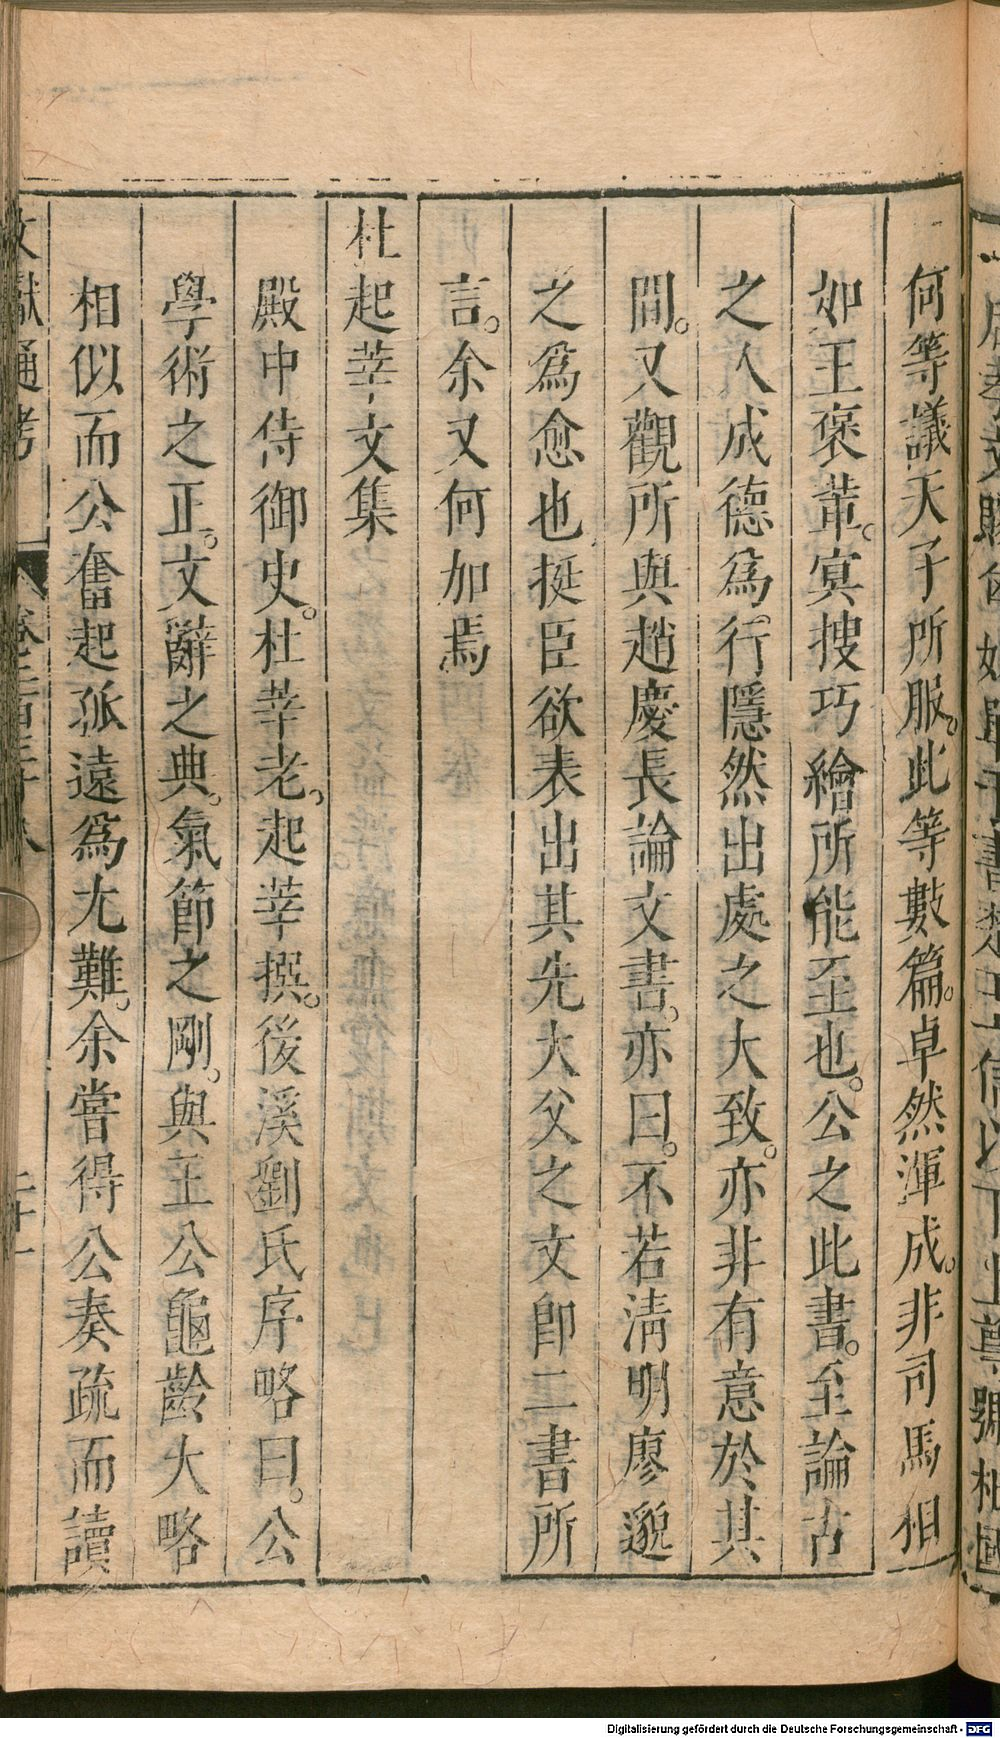 何等議天子所服。此等數篇。卓然渾成。非司馬相
如王褒輩。㝠搜巧繪所能至也。公之此書。至論古
之人成德爲。行隱然出處之大致。亦非有意於其
間。又觀所與趙慶長論文書。亦曰。不若淸明廖邈
之爲愈也挺臣欲表出其先大父之文卽二書所
言。余又何加焉
杜起莘文集
殿中侍御史。杜莘老。起莘撰。後溪劉氏序略曰。公
學術之正。文辭之典。氣節之剛。與王公龜齡大略
相似而公奮起孤遠爲尢難。余嘗得公奏疏而讀
文獻通考
Digitalisierung gefördert durch die Deutsche Forschungsgemeinschaft - DFG